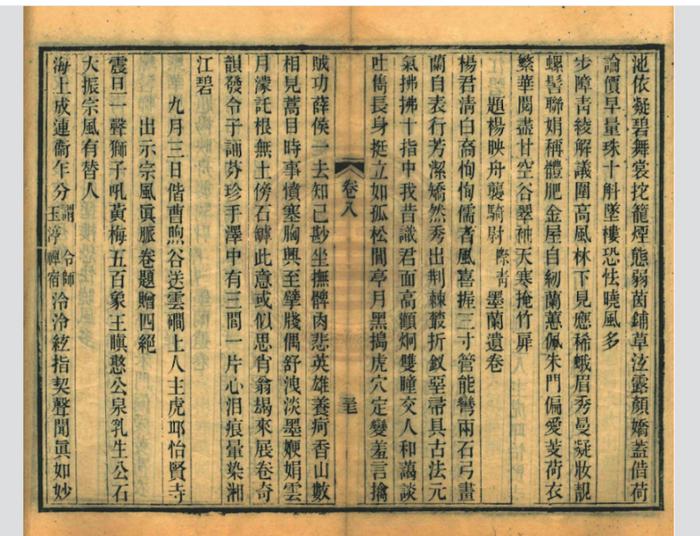 池依凝碧舞裳挖籠煙態弱茵鋪草泫露顏嬌蓋借荷
論價早量珠十斛墜樓恐怯曉風多
步障青綾解議圍高風林下見應稀蛾眉秀曼疑妝靚
螺髻聯娟稱體肥金屋自紉蘭蕙佩朱門偏愛芰荷衣
繁華閱盡甘空谷翠袖天寒掩竹扉
題楊映舟襲騎尉際青墨蘭遺卷
楊君清白裔恂恂儒者風喜握三寸管能彎兩石弓畫
蘭自表行芳潔矯然秀出荆棘叢折釵堊帚具古法元
氣拂拂十指中我昔識君面高顴炯雙瞳交人和藹談
吐雋長身挺立如孤松間亭月黑搗虎穴定變羞言擒
卷八
賊功薛侯一去知己尠坐撫髀肉悲英雄養疴香山數
相見蒿目時事憤塞胸興至擘牋偶舒洩淡墨娟雲
月濛託根無土傍石罅此意或似思肖翁朅來展卷奇
韻發令子誦芬珍手澤中有三閭一片心泪痕暈染湘
江碧
九月三日偕曹煦谷送雲磵上人主虎邱怡賢寺
出示宗風眞脈卷題贈四絶
震旦一聲獅子吼黃梅五百象王瞋憨公泉乳生公石
大振宗風有替人
海上成連衞午分謂玉渟令師禪宿泠泠絃指契聲聞眞如妙